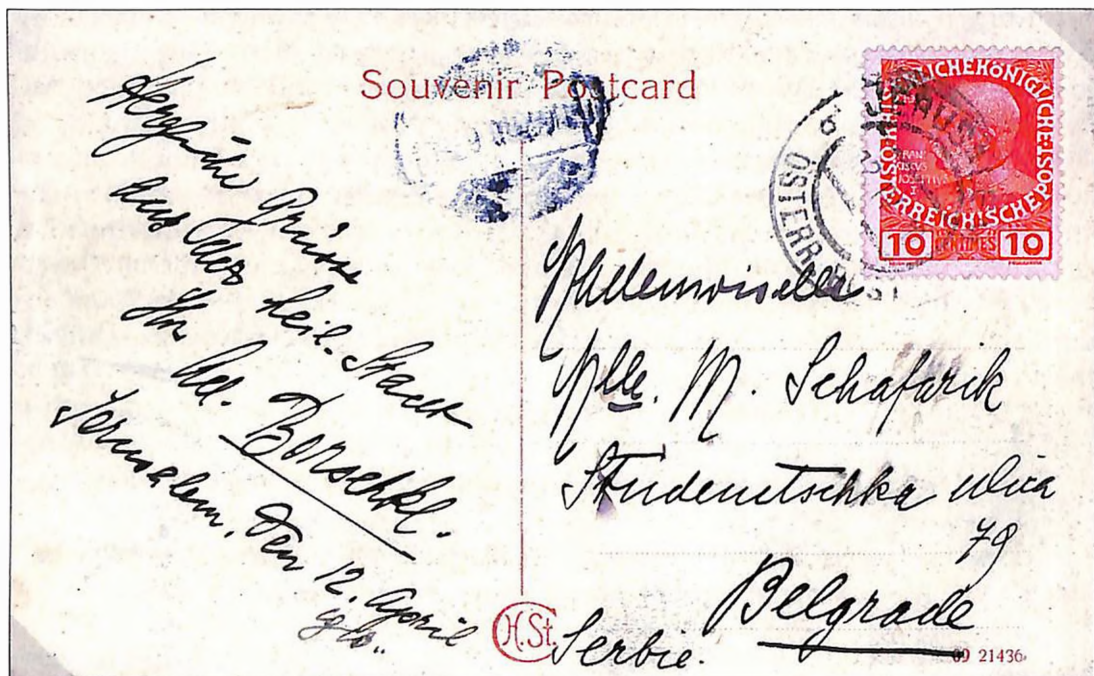 Souvenir Postcard
Herzliche Grüsse
aus der heil. Stadt
Ihr Ad. Borschkl.
Jerusalem, den 12. April
1910.
KAISERLICHE KÖNIGLICHE ÖSTERREICHISCHE POST
FRANCISCVS JOSEPHVS I
10 CENTIMES 10
JERUSALEM
ÖSTERR. POST
Mademoiselle
Mlle. M. Schafarik
Studenetschka ulica
79
Belgrade
Serbie.
H.St.
09 21436